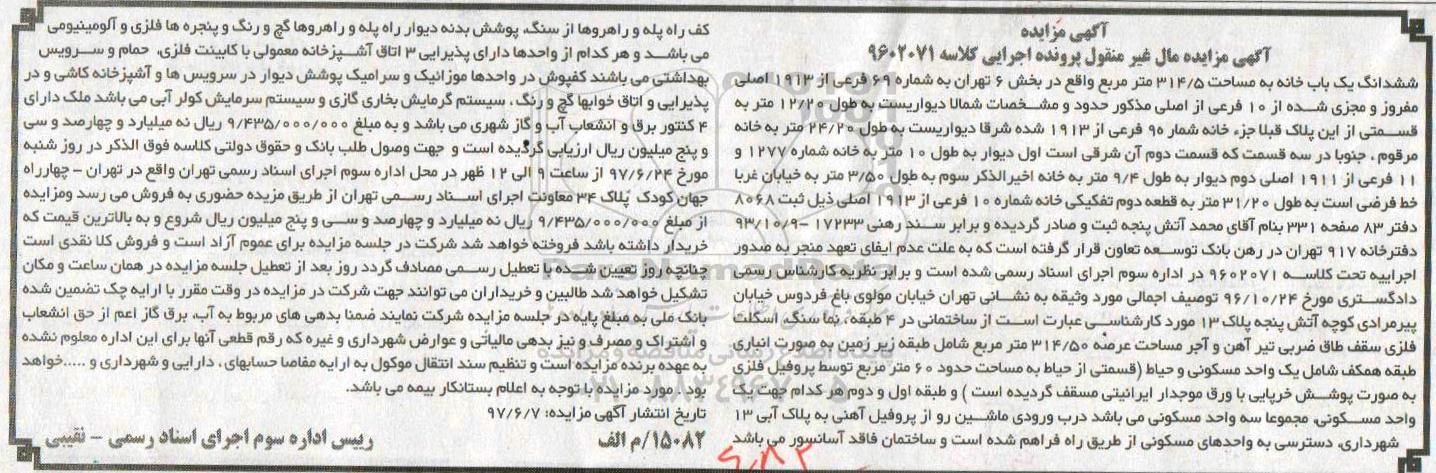 آگهی مزایده
آگهی مزایده مال غیر منقول پرونده اجرایی کلاسه ۹۶۰۲۰۷۱
ششدانگ یک باب خانه به مساحت ۳۱۴/۵ متر مربع واقع در بخش ۶ تهران به شماره ۶۹ فرعی از ۱۹۱۳ اصلی
مفروز و مجزی شده از ۱۰ فرعی از اصلی مذکور حدود و مشخصات شمالا دیواریست به طول ۱۲/۲۰ متر به
قسمتی از این پلاک قبلا جزء خانه شمار ۹۰ فرعی از ۱۹۱۳ شده شرقا دیواریست به طول ۲۴/۲۰ متر به خانه
مرقوم ، جنوبا در سه قسمت که قسمت دوم آن شرقی است اول دیوار به طول ۱۰ متر به خانه شماره ۱۲۷۷ و
۱۱ فرعی از ۱۹۱۱ اصلی دوم دیوار به طول ۹/۴ متر به خانه اخیرالذکر سوم به طول ۳/۵۰ متر به خیابان غربا
خط فرضی است به طول ۳۱/۲۰ متر به قطعه دوم تفکیکی خانه شماره ۱۰ فرعی از ۱۹۱۳ اصلی ذیل ثبت ۸۰۶۸
دفتر ۸۳ صفحه ۳۳۱ بنام آقای محمد آتش پنجه ثبت و صادر گردیده و برابر سند رهنی ۱۷۲۳۳ -۹۳/۱۰/۹
دفترخانه ۹۱۷ تهران در رهن بانک توسعه تعاون قرار گرفته است که به علت عدم ایفای تعهد منجر به صدور
اجراییه تحت کلاسه ۹۶۰۲۰۷۱ در اداره سوم اجرای اسناد رسمی شده است و برابر نظریه کارشناس رسمی
دادگستری مورخ ۹۶/۱۰/۲۴ توصیف اجمالی مورد وثیقه به نشانی تهران خیابان مولوی باغ فردوس خیابان
پیرمرادی کوچه آتش پنجه پلاک ۱۳ مورد کارشناسی عبارت است از ساختمانی در ۴ طبقه، نما سنگ، اسکلت
فلزی سقف طاق ضربی تیر آهن و آجر مساحت عرصه ۳۱۴/۵۰ متر مربع شامل طبقه زیر زمین به صورت انباری
طبقه همکف شامل یک واحد مسکونی و حیاط (قسمتی از حیاط به مساحت حدود ۶۰ متر مربع توسط پروفیل فلزی
به صورت پوشش خرپایی با ورق موجدار ایرانیتی مسقف گردیده است ) و طبقه اول و دوم هر کدام جهت یک
واحد مسکونی، مجموعا سه واحد مسکونی می باشد درب ورودی ماشین رو از پروفیل آهنی به پلاک آبی ۱۳
شهرداری، دسترسی به واحدهای مسکونی از طریق راه فراهم شده است و ساختمان فاقد آسانسور می باشد
کف راه پله و راهروها از سنگ، پوشش بدنه دیوار راه پله و راهروها گچ و رنگ و پنجره ها فلزی و آلومینیومی
می باشد و هر کدام از واحدها دارای پذیرایی ۳ اتاق آشپزخانه معمولی با کابینت فلزی، حمام و سرویس
بهداشتی می باشند کفپوش در واحدها موزائیک و سرامیک پوشش دیوار در سرویس ها و آشپزخانه کاشی و در
پذیرایی و اتاق خوابها گچ و رنگ ، سیستم گرمایش بخاری گازی و سیستم سرمایش کولر آبی می باشد ملک دارای
۴ کنتور برق و انشعاب آب و گاز شهری می باشد و به مبلغ ۹/۴۳۵/۰۰۰/۰۰۰ ریال نه میلیارد و چهارصد و سی
و پنج میلیون ریال ارزیابی گردیده است و جهت وصول طلب بانک و حقوق دولتی کلاسه فوق الذکر در روز شنبه
مورخ ۹۷/۶/۲۴ از ساعت ۹ الی ۱۲ ظهر در محل اداره سوم اجرای اسناد رسمی تهران واقع در تهران - چهارراه
جهان کودک پلاک ۳۴ معاونت اجرای اسناد رسمی تهران از طریق مزیده حضوری به فروش می رسد ومزایده
از مبلغ ۹/۴۳۵/۰۰۰/۰۰۰ ریال نه میلیارد و چهارصد و سی و پنج میلیون ریال شروع و به بالاترین قیمت که
خریدار داشته باشد فروخته خواهد شد شرکت در جلسه مزایده برای عموم آزاد است و فروش کلا نقدی است
چنانچه روز تعیین شده با تعطیل رسمی مصادف گردد روز بعد از تعطیل جلسه مزایده در همان ساعت و مکان
تشکیل خواهد شد طالبین و خریداران می توانند جهت شرکت در مزایده در وقت مقرر با ارایه چک تضمین شده
بانک ملی به مبلغ پایه در جلسه مزایده شرکت نمایند ضمنا بدهی های مربوط به آب، برق گاز اعم از حق انشعاب
و اشتراک و مصرف و نیز بدهی مالیاتی و عوارض شهرداری و غیره که رقم قطعی آنها برای این اداره معلوم نشده
به عهده برنده مزایده است و تنظیم سند انتقال موکول به ارایه مفاصا حسابهای ، دارایی و شهرداری و .....خواهد
بود. مورد مزایده با توجه به اعلام بستانکار بیمه می باشد.
تاریخ انتشار آگهی مزایده: ۹۷/۶/۷
۱۵۰۸۲/م الف
رییس اداره سوم اجرای اسناد رسمی - نقیبی